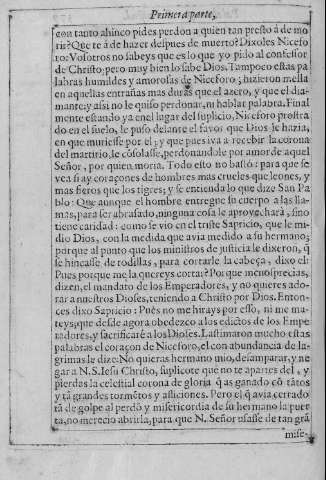 Primera parte,
con tanto ahinco pides perdon a quien tan presto â de mo
rir? Que te â de hazer despues de muerto? Dixoles Nicefo
ro: Vosotros no sabeys que es lo que yo pido al confessor
de Christo; pero muy bien lo sabe Dios. Tampoco estas pa
labras humildes y amorosas de Niceforo; hizieron mella
en aquellas entrañas mas duras que el azero, y que el dia-
mante; y assi no le quiso perdonar, ni hablar palabra. Final
mente estando ya en el lugar del suplicio, Niceforo prostra
do en el suelo, le puso delante el favor que Dios le hazia,
en que muriesse por el; y que pues iva a recebir la corona
del martirio, le cõsolasse, perdonandole por amor de aquel
Señor, por quien moria. Todo esto no bastô: para que se
vea si ay coraçones de hombres mas crueles que leones, y
mas fieros que los tigres; y se entienda lo que dize San Pa
blo: Que aunque el hombre entregue su cuerpo a las lla-
mas, para ser abrasado, ninguna cosa le aprovecharâ, sino
tiene caridad: como se vio en el triste Sapricio, que le mi-
dio Dios, con la medida que avia medido a su hermano;
porque al punto que los ministros de justicia le dixeron, q̃
se hincasse de rodillas, para cortarle la cabeça, dixo el:
Pues porque me la quereys cortar? Porque menosprecias,
dizen, el mandato de los Emperadores, y no quieres ado-
rar a nuestros Dioses, teniendo a Christo por Dios. Enton-
ces dixo Sapricio: Pues no me hirays por esso, ni me ma-
teys; que desde agora obedezco a los edictos de los Empe
radores, y sacrificarê a los Dioses. Lastimaron mucho estas
palabras el coraçon de Niceforo, el con abundancia de la-
grimas le dize: No quieras hermano mio, desamparar, y ne
gar a N. S. Iesu Christo, suplicote que no te apartes del, y
pierdas la celestial corona de gloria q̃ as ganado cõ tãtos
y tã grandes tormẽtos y afliciones. Pero el q̃ avia cerrado
tã de golpe al perdõ y misericordia de su hermano la puer
ta, no merecio abrirla, para que N. Señor usasse de tan grã
mise-